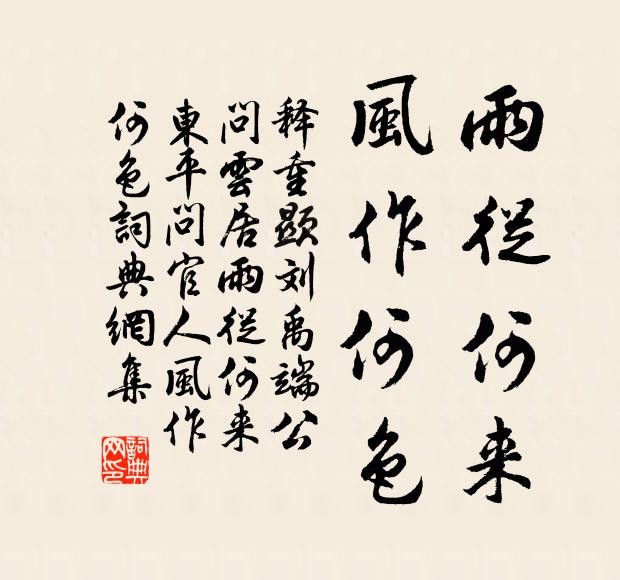 雨從何来
風作何色
释重顯刘禹端公
問雲居雨從何来
東平問官人風作
何色詞典網集
詞典
网印